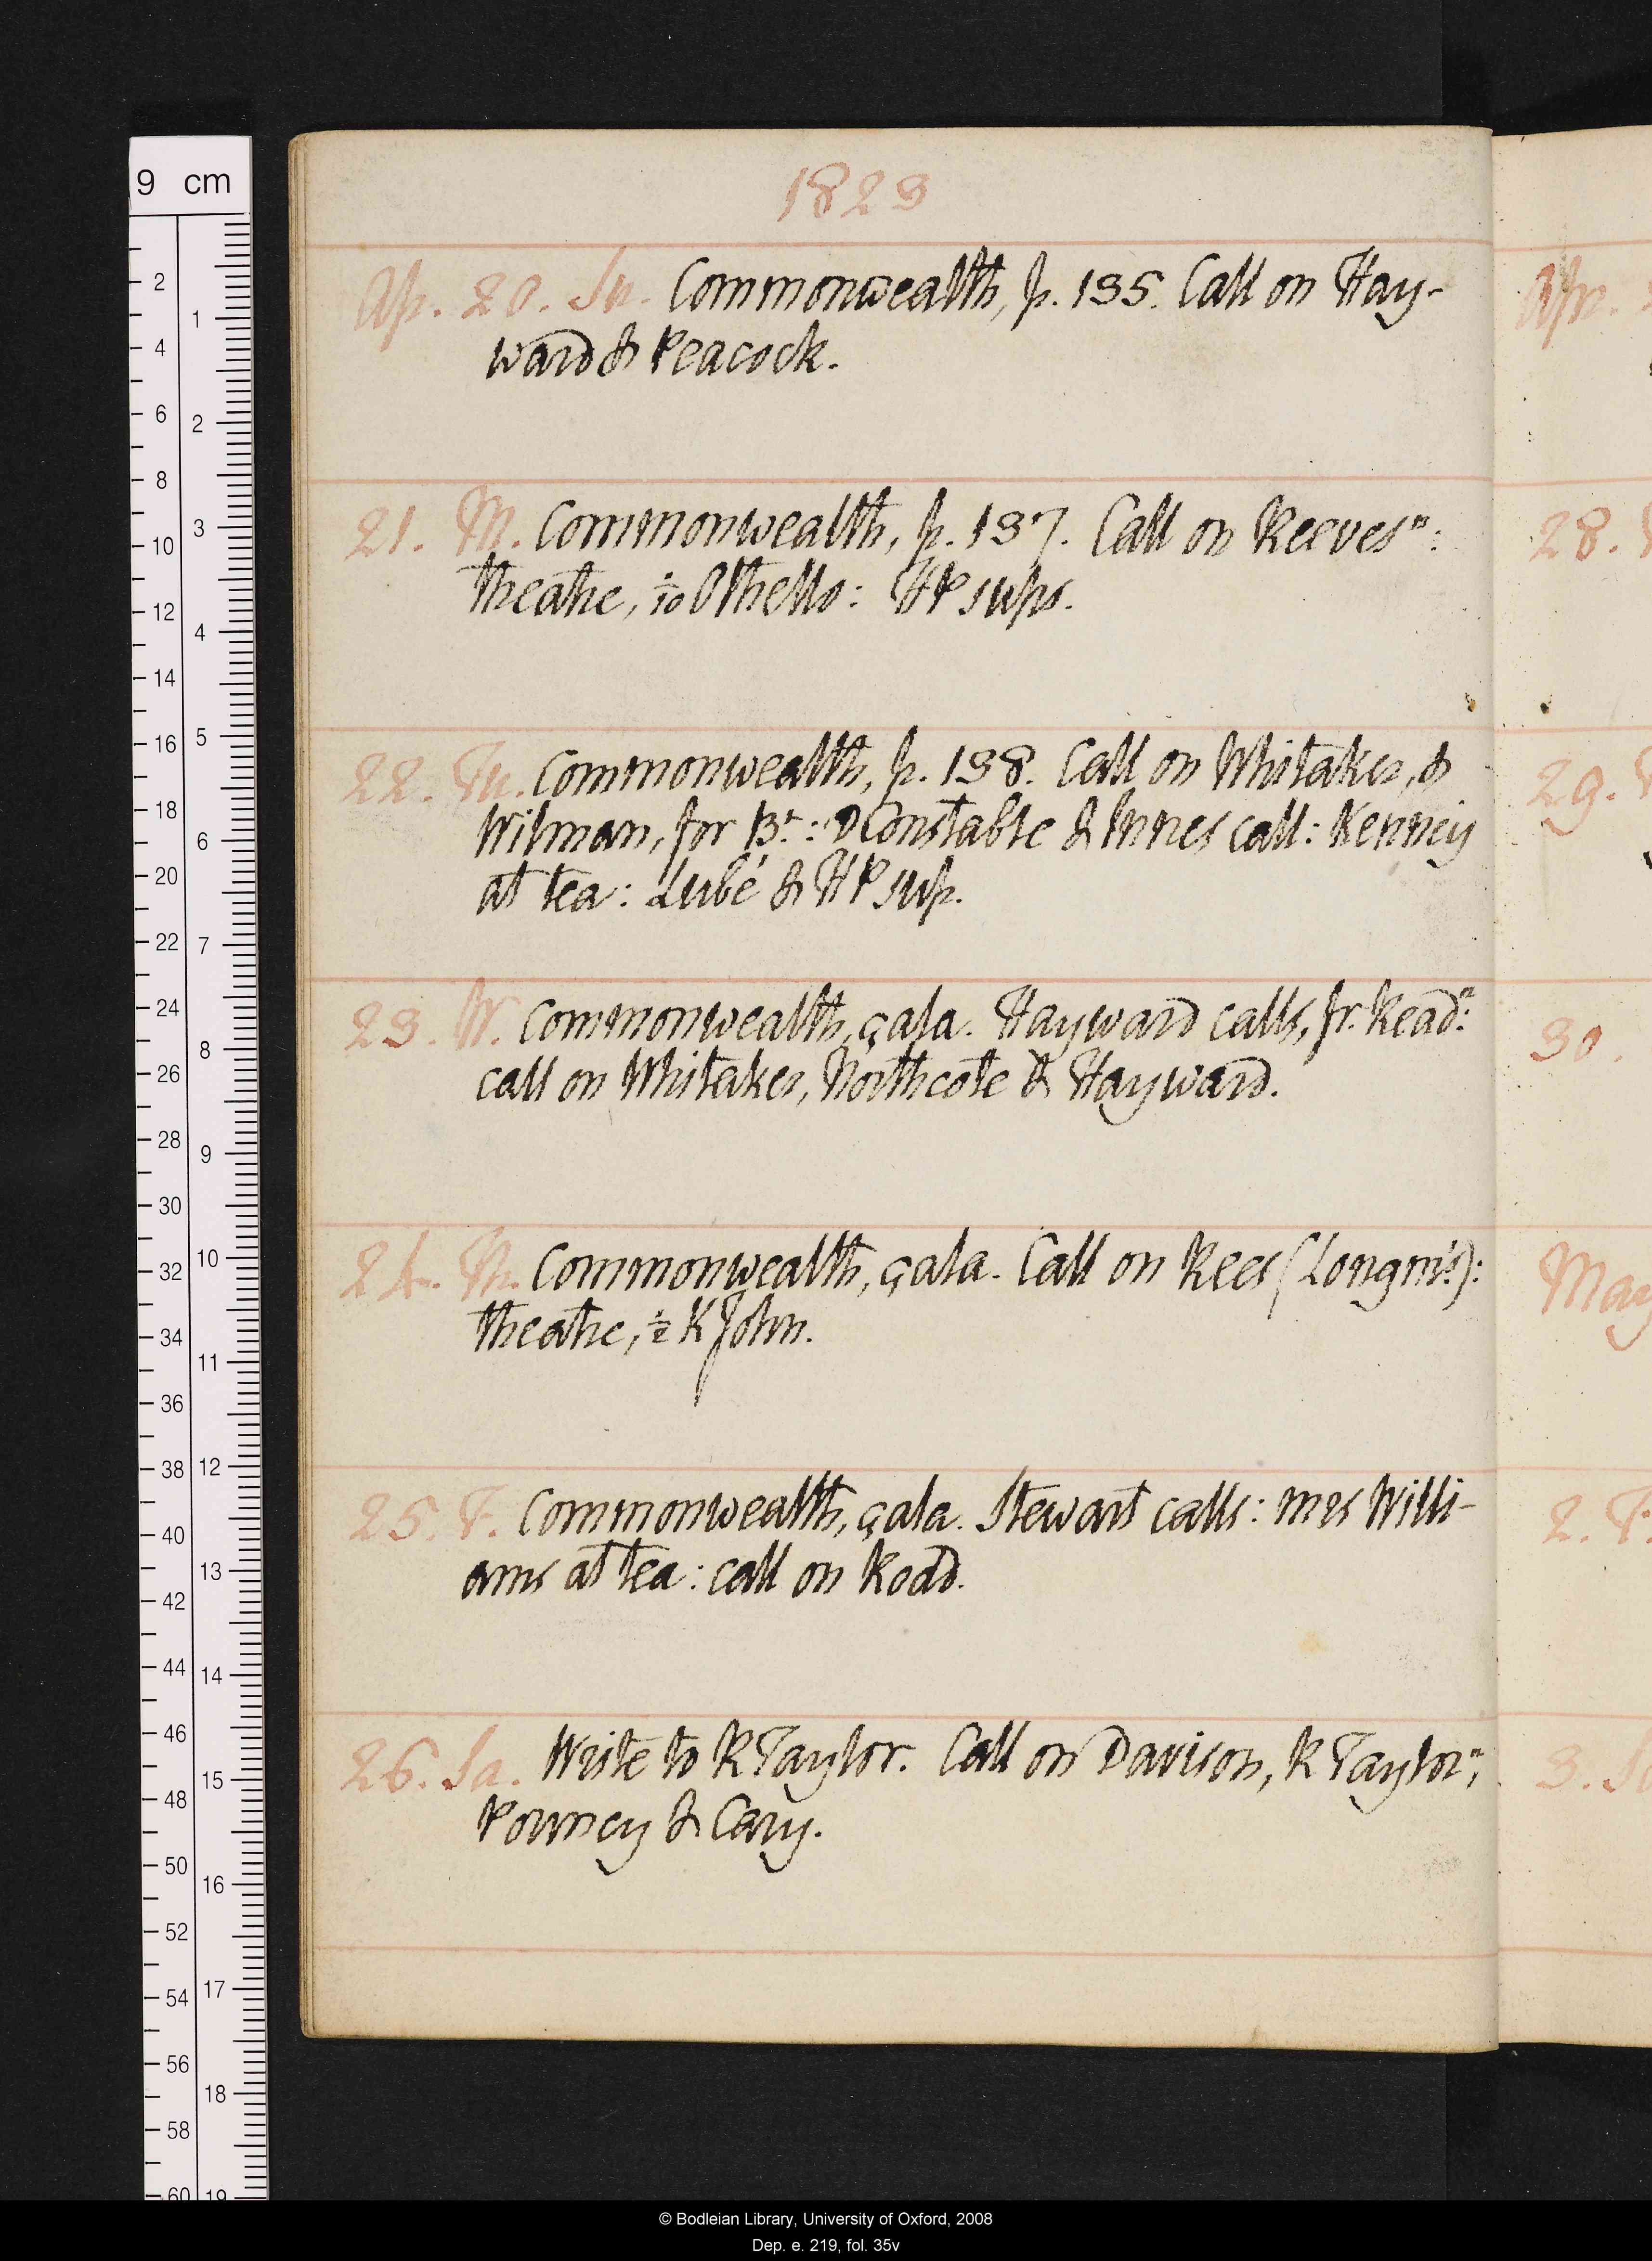 9 cm
1823
Ap. 20. Su. Commonwealth, p. 135. Call on Hay-
ward & Peacock.
21. M. Commonwealth, p. 137. Call on Reeves n:
theatre, Othello: HP sups.
22. Tu. Commonwealth, p. 138. Call on Whitaker, &
Wilman, for Bt: DConstable & Innes call: Kenney
at tea: Lubé & HP sup.
23. W. Commonwealth, çala. Hayward calls, fr. Read n:
call on Whitaker, Northcote & Hayward.
24. Th. Commonwealth, çala. Call on Rees (Longm's):
theatre, ½ K John.
25. F. Commonwealth, çala. Stewart calls: mrs Willi-
ams at tea: call on Rodd.
26. Sa. Write to R Taylor. Call on Davison, R Taylor n,
Pouncy & Cary.
Apr.
28.
29.
30.
May
2. F.
3. S
© Bodleian Library, University of Oxford, 2008
Dep. e. 219, fol. 35v